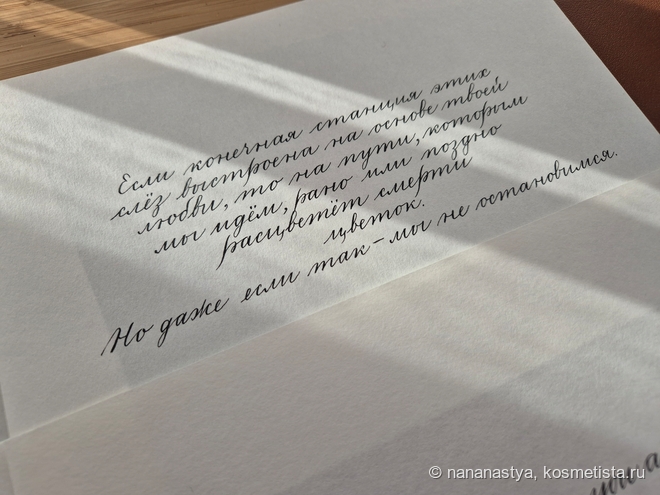 Если конечная станция этих
слёз выстроена на основе твоей
любви, то на пути, которым
мы идём, рано или поздно
расцветёт смерти
цветок.
Но даже если так – мы не остановимся.
© nananastya, kosmetista.ru